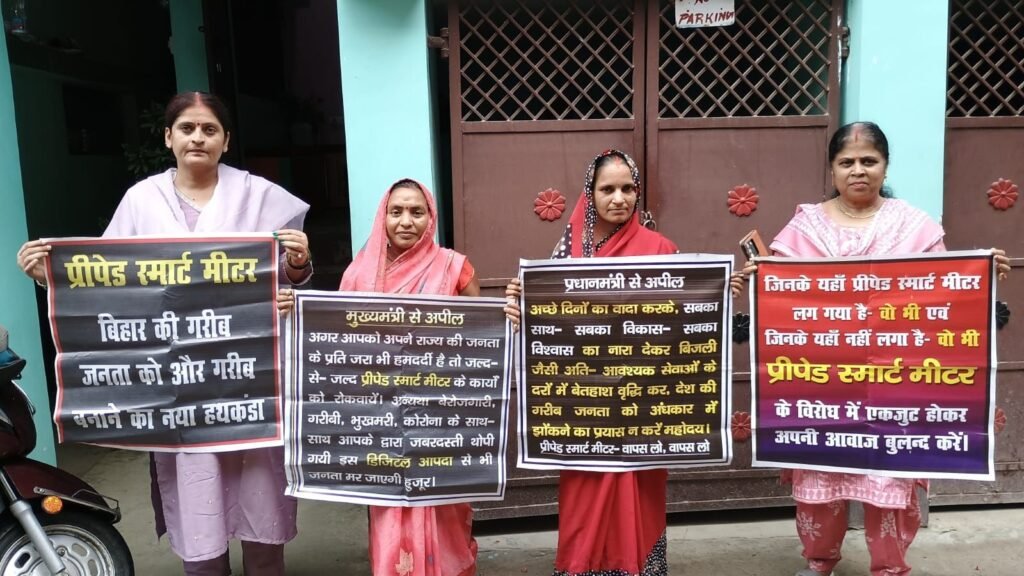 PARKING
प्रीपेड स्मार्ट मीटर
बिहार की गरीब
जनता को और गरीब
बनाने का नया हथकंडा
मुख्यमंत्री से अपील
अगर आपको अपने राज्य की जनता
के प्रति जरा भी हमदर्दी है तो जल्द-
से- जल्द प्रीपेड स्मार्ट मीटर के कार्यो
को रोकवायें। अन्यथा बेरोजगारी,
गरीबी, भुखमरी, कोरोना के साथ-
साथ आपके द्वारा जबरदस्ती थोपी
गयी इस डिजिटल आपदा से भी
जनता मर जाएगी हुजूर।
प्रधानमंत्री से अपील
अच्छे दिनों का वादा करके, सबका
साथ- सबका विकास- सबका
विश्वास का नारा देकर बिजली
जैसी अति- आवश्यक सेवाओं के
दरों में बेतहाश वृद्धि कर, देश की
गरीब जनता को अंधकार में
झोंकने का प्रयास न करें महोदय।
प्रीपेड स्मार्ट मीटर- वापस लो, वापस लो
जिनके यहाँ प्रीपेड स्मार्ट मीटर
लग गया है- वो भी एवं
जिनके यहाँ नहीं लगा है- वो भी
प्रीपेड स्मार्ट मीटर
के विरोध में एकजुट होकर
अपनी आवाज बुलन्द करें।